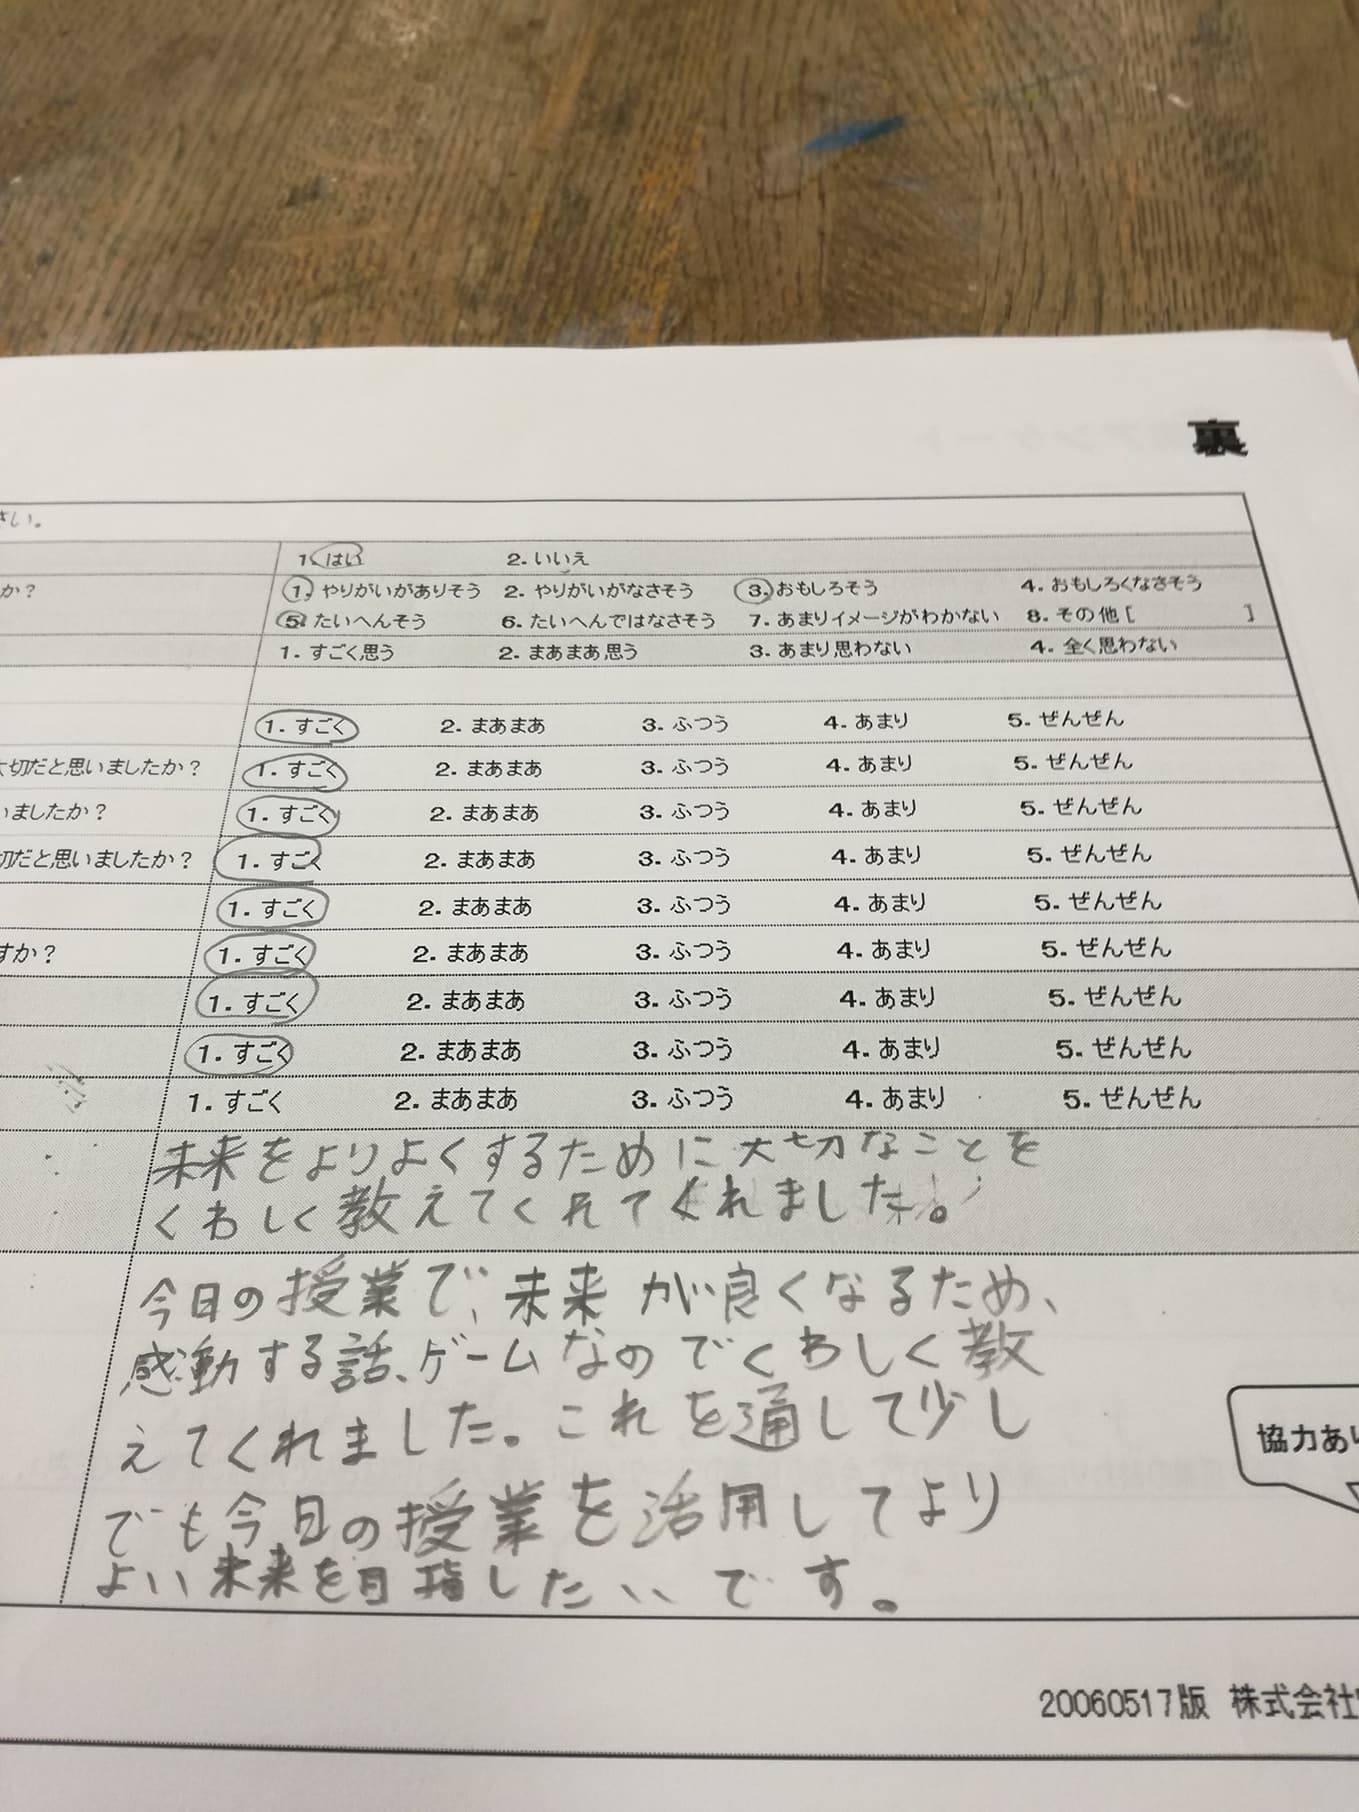 裏
さい。
1. はい 2. いいえ
か？ 1. やりがいがありそう 2. やりがいがなさそう 3. おもしろそう 4. おもしろくなさそう
5. たいへんそう 6. たいへんではなさそう 7. あまりイメージがわかない 8. その他 [ ]
1. すごく思う 2. まあまあ思う 3. あまり思わない 4. 全く思わない
1. すごく 2. まあまあ 3. ふつう 4. あまり 5. ぜんぜん
切だと思いましたか？ 1. すごく 2. まあまあ 3. ふつう 4. あまり 5. ぜんぜん
いましたか？ 1. すごく 2. まあまあ 3. ふつう 4. あまり 5. ぜんぜん
切だと思いましたか？ 1. すごく 2. まあまあ 3. ふつう 4. あまり 5. ぜんぜん
1. すごく 2. まあまあ 3. ふつう 4. あまり 5. ぜんぜん
すか？ 1. すごく 2. まあまあ 3. ふつう 4. あまり 5. ぜんぜん
1. すごく 2. まあまあ 3. ふつう 4. あまり 5. ぜんぜん
1. すごく 2. まあまあ 3. ふつう 4. あまり 5. ぜんぜん
1. すごく 2. まあまあ 3. ふつう 4. あまり 5. ぜんぜん
未来をよりよくするために大切なことを
くわしく教えてくれてくれました。
今日の授業で、未来が良くなるため、
感動する話、ゲームなのでくわしく教
えてくれました。これを通して少し
でも今日の授業を活用してより
よい未来を目指したいです。
協力あり
20060517版 株式会社